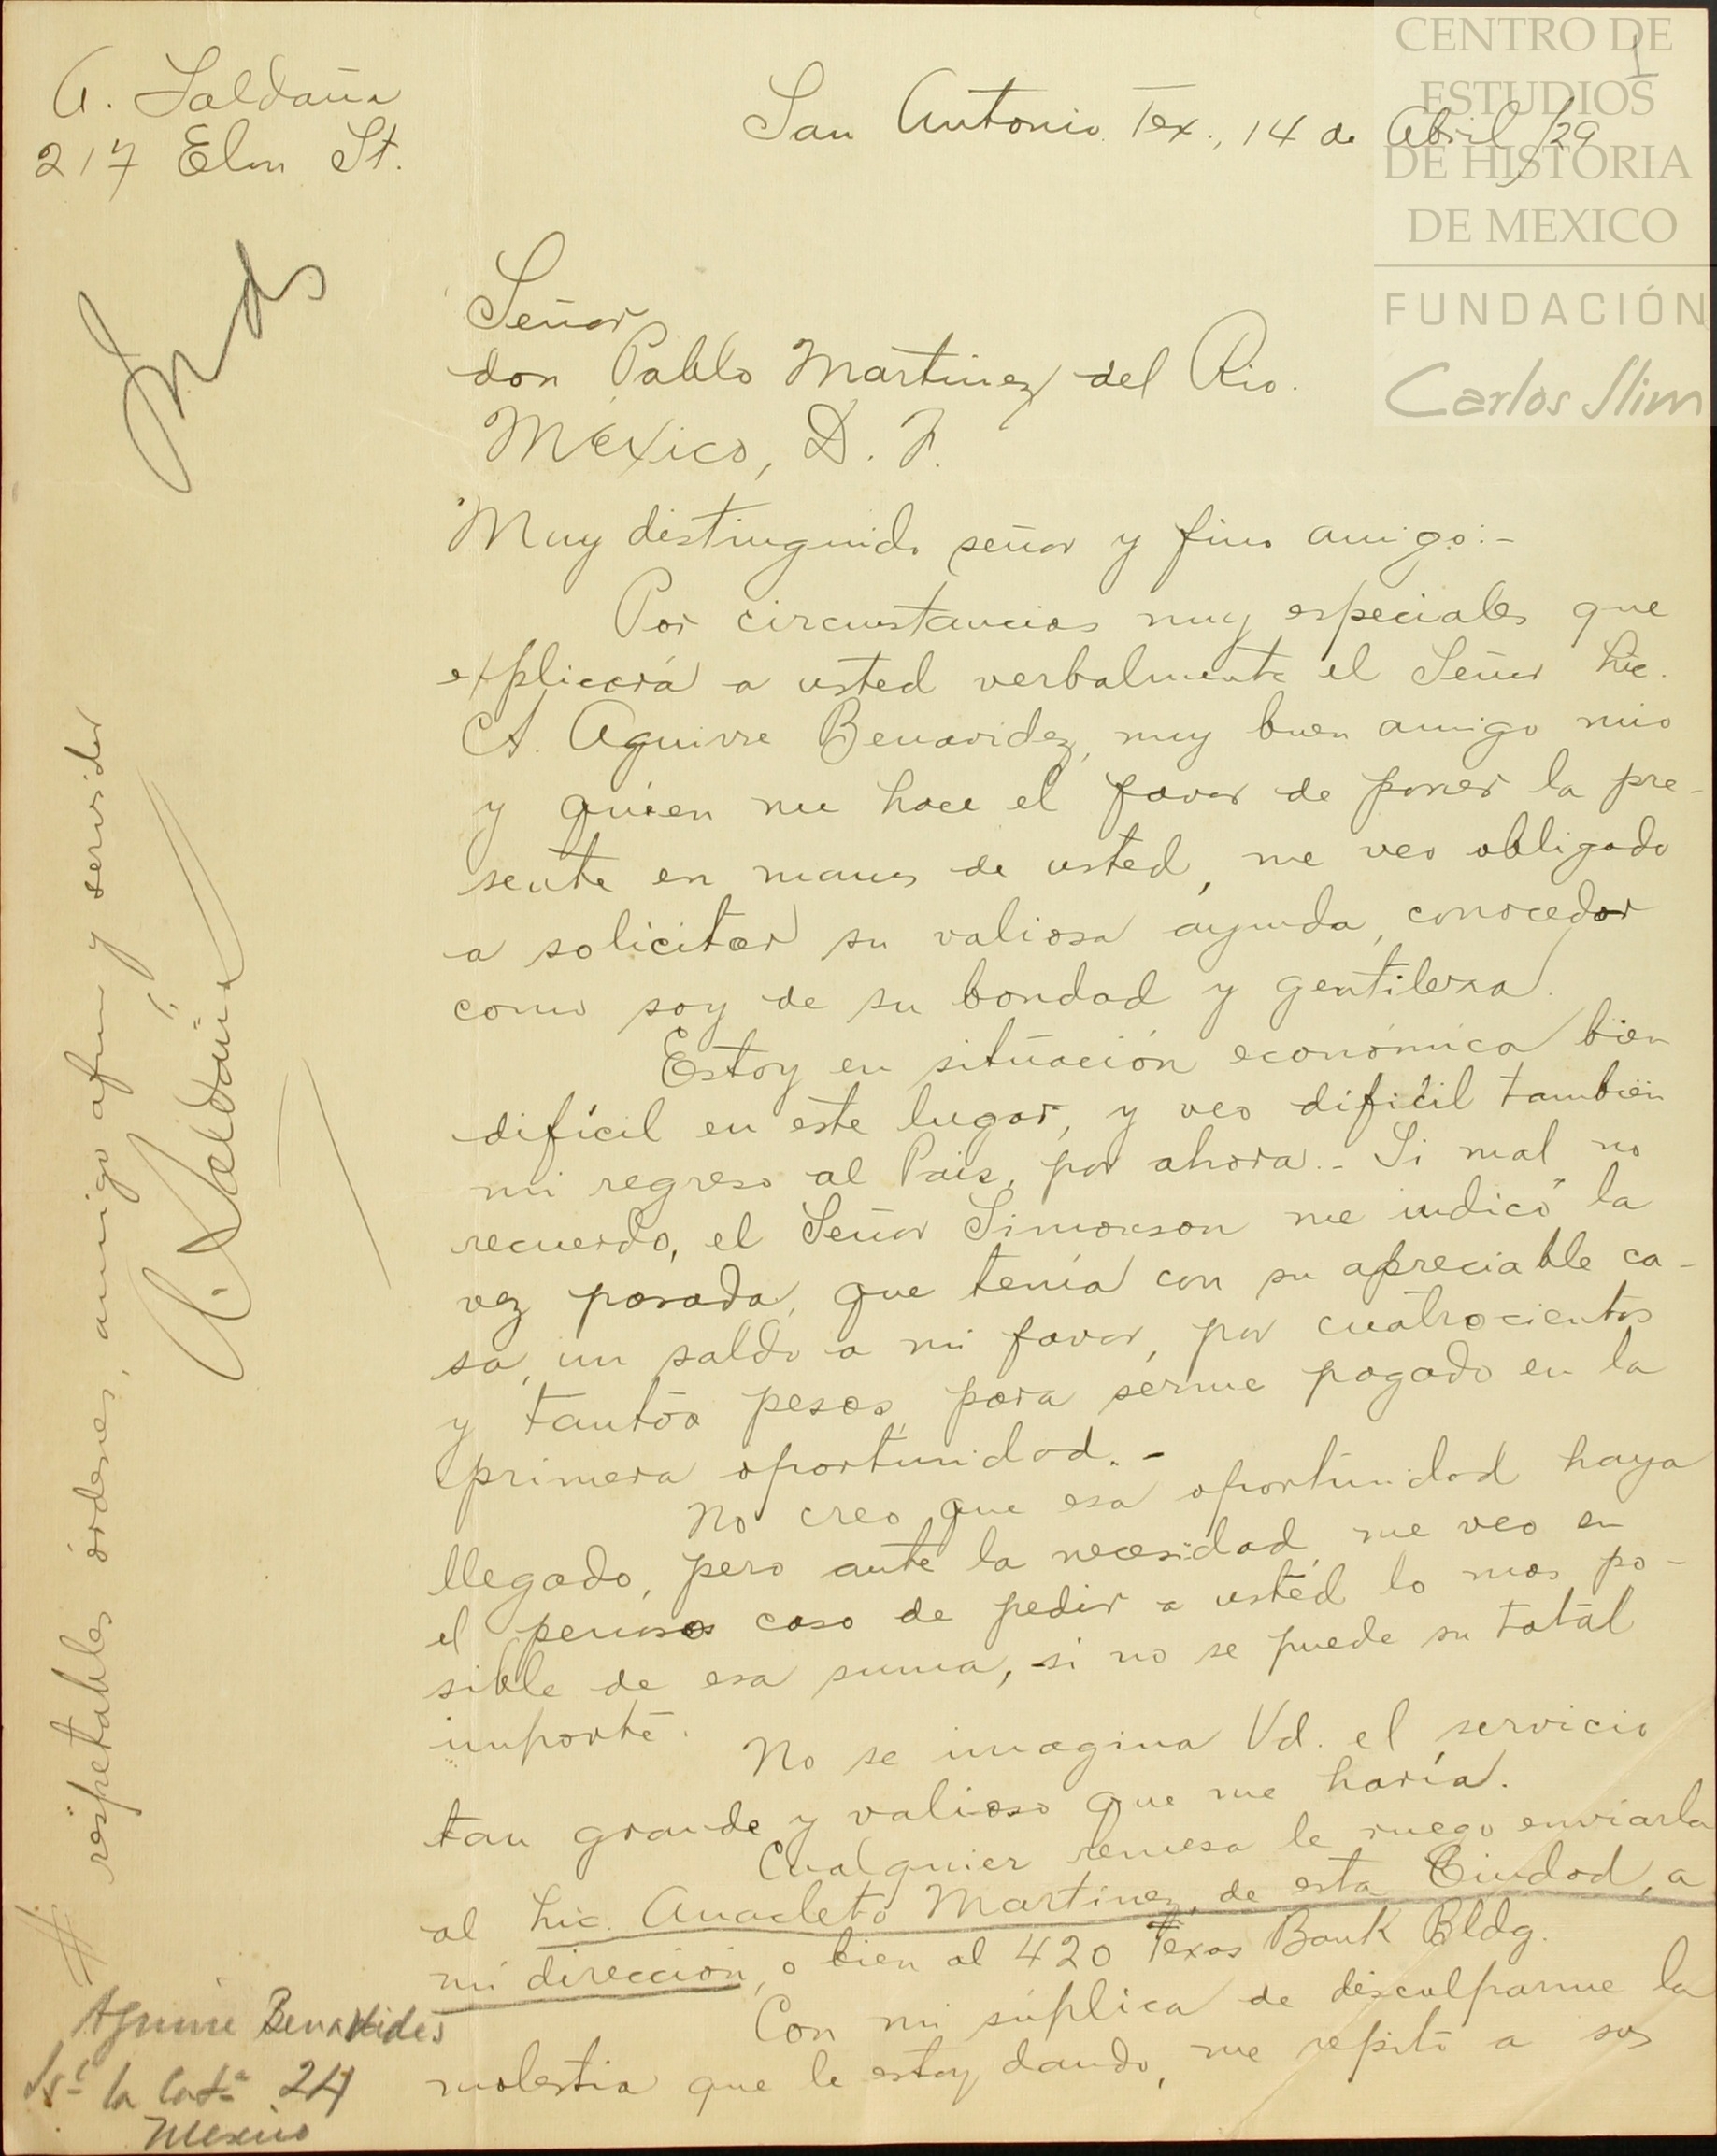 1
CENTRO DE
ESTUDIOS
DE HISTORIA
DE MEXICO
FUNDACIÓN
Carlos Slim
A. Saldaña
217 Elm St.
San Antonio. Tex., 14 de Abril /29
Señor
don Pablo Martinez del Rio.
México, D. F.
Muy distinguido señor y fino amigo:-
Por circunstancias muy especiales que
explicará a usted verbalmente el Señor Lic.
A. Aguirre Benavidez, muy buen amigo mio
y quien me hace el favor de poner la pre-
sente en manos de usted, me veo obligado
a solicitar su valiosa ayuda, conocedor
como soy de su bondad y gentileza.
Estoy en situación económica bien
difícil en este lugar, y veo dificil tambien
mi regreso al Pais, por ahora.- Si mal no
recuerdo, el Señor Simonson me indicó la
vez pasada, que tenía con su apreciable ca-
sa, un saldo a mi favor, por cuatrocientos
y tantos pesos, para serme pagado en la
primera oportunidad.-
No creo que esa oportunidad haya
llegado, pero ante la necesidad me veo en
el penoso caso de pedir a usted lo mas po-
sible de esa suma, si no se puede su total
importe.
No se imagina Vd. el servicio
tan grande y valioso que me haría.
Cualquier remesa le ruego enviarla
al Lic. Anacleto Martinez, de esta Ciudad, a
mi dirección, o bien al 420 Texas Bank Bldg.
Con mi súplica de disculparme la
molestia que le estoy dando, me repito a sus
# respetables órdenes, amigo afmo y servidor
A. Saldaña
#
Aguirre Benavides
24
Mexico